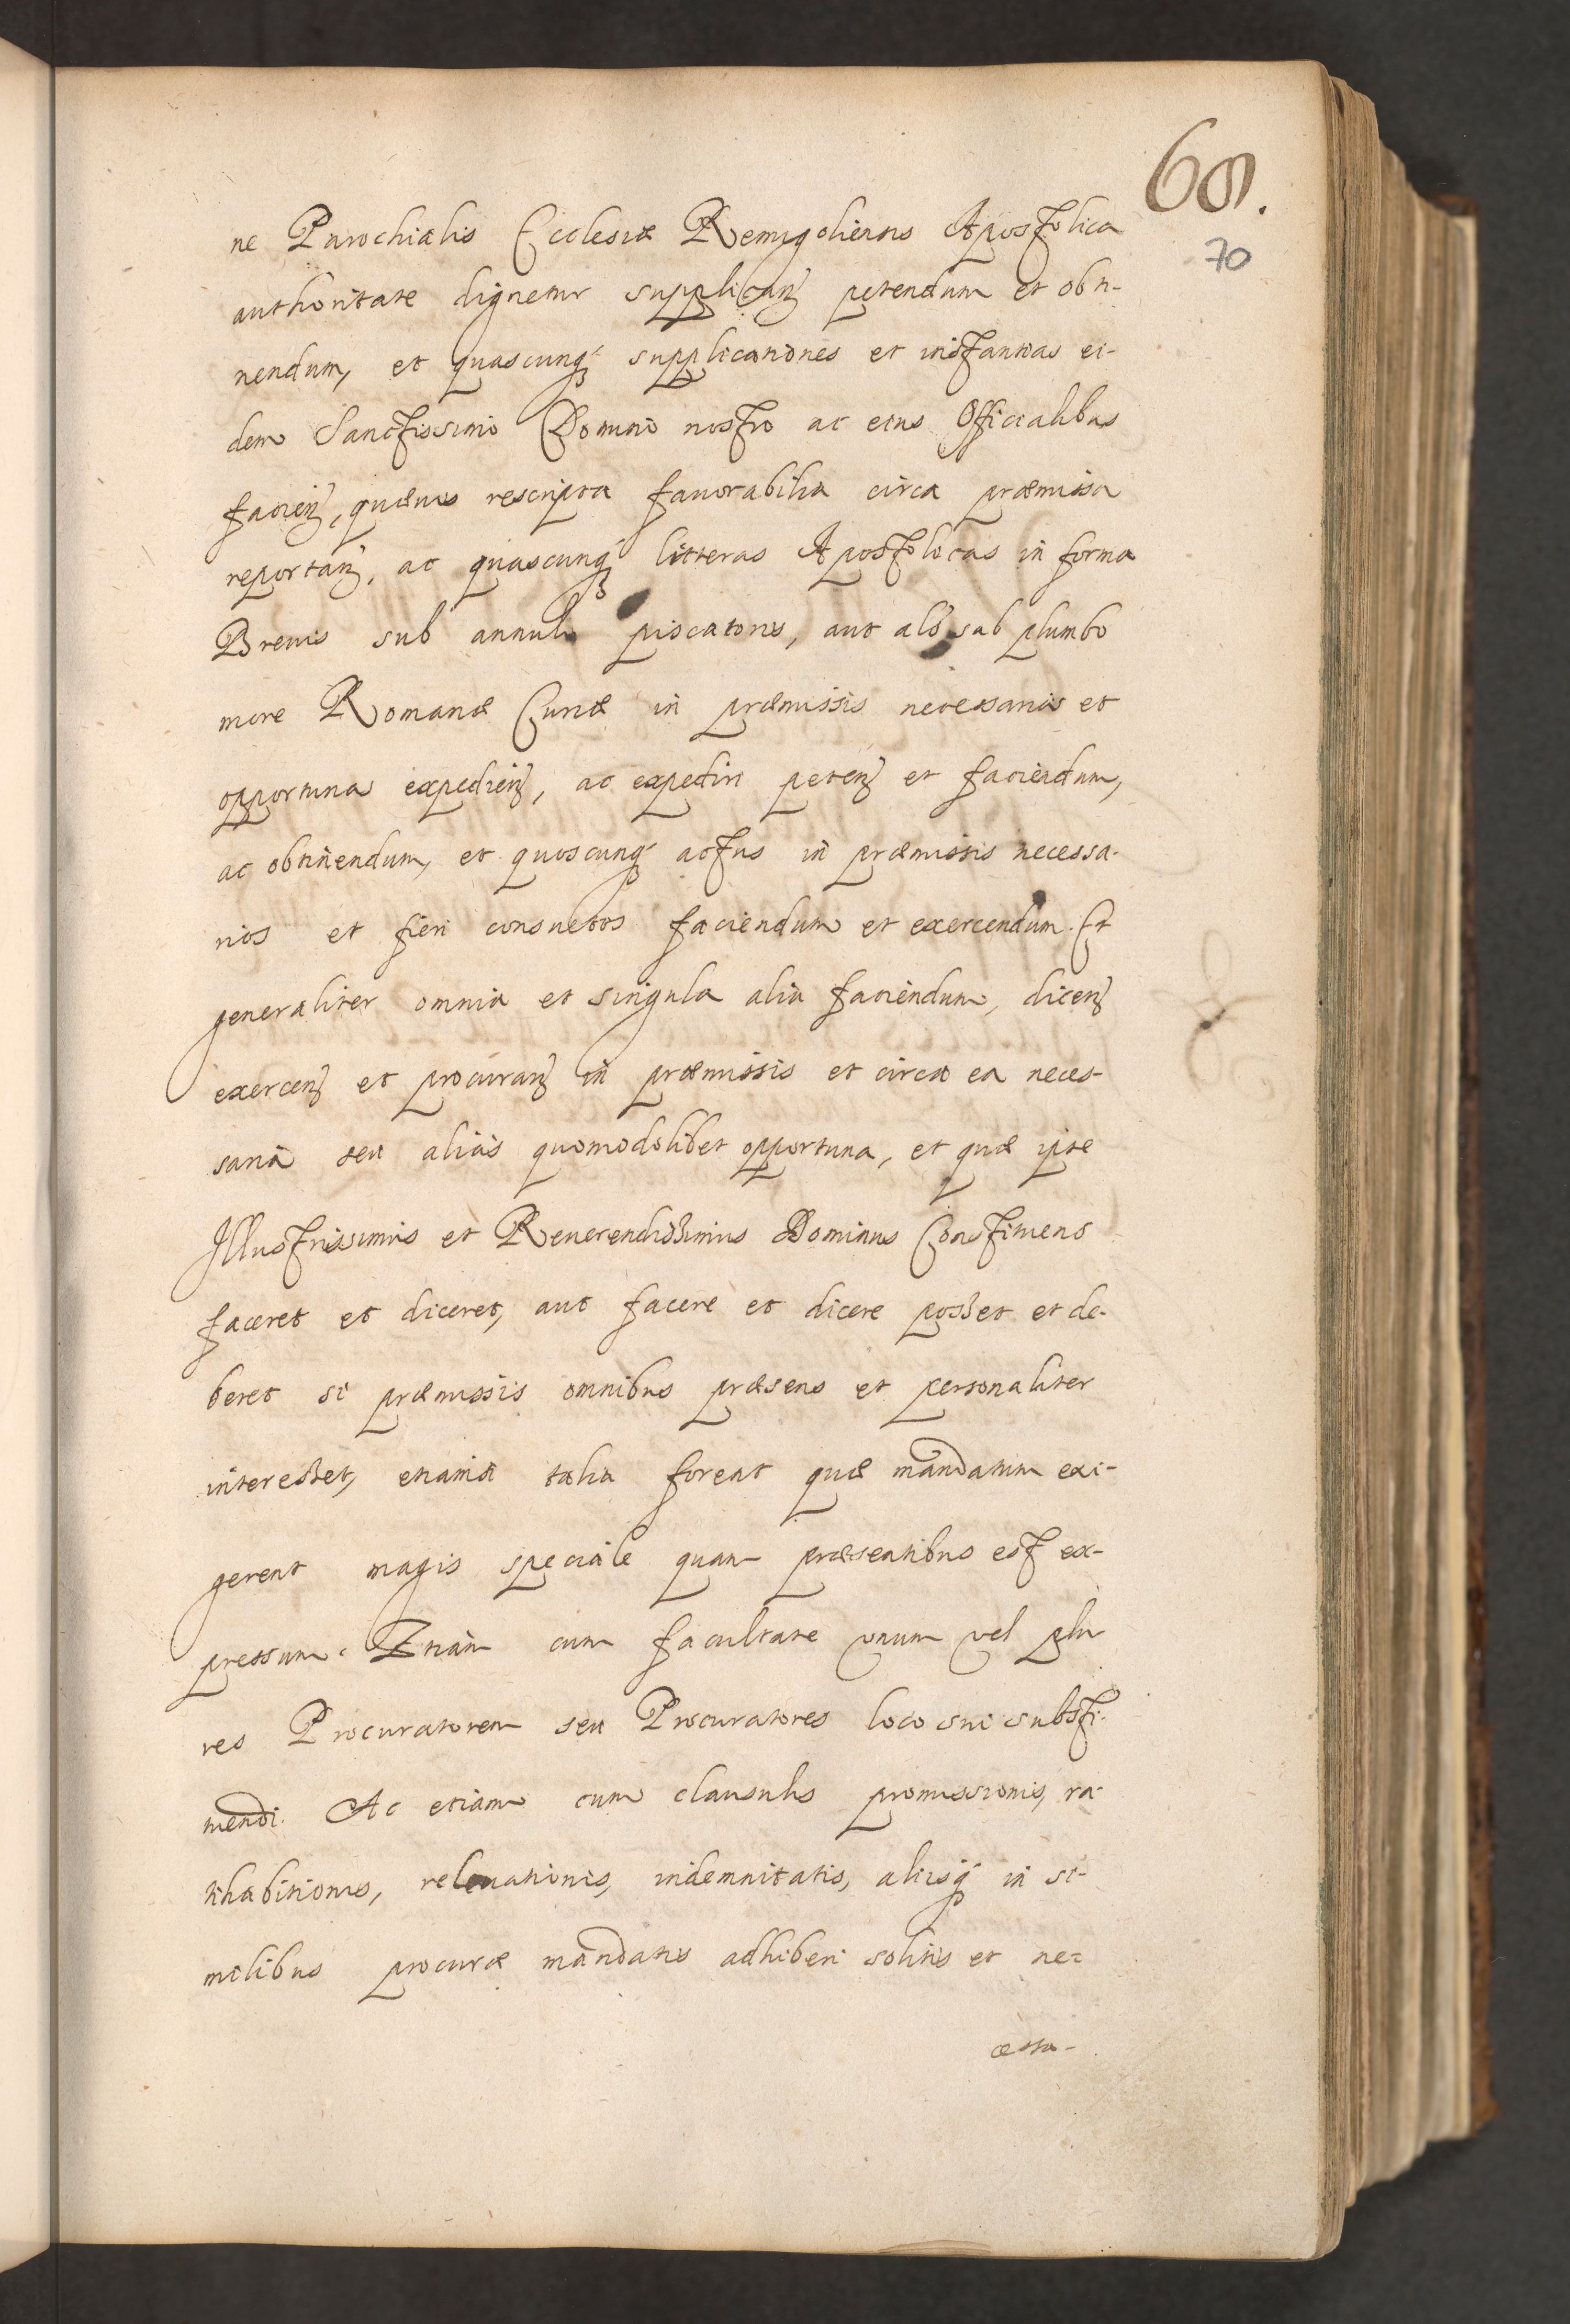 68.
70
ne Parochialis Ecclesiæ Remigoliensis Apostolica
authoritate dignetur supplicanɜ petendum et obti-
nendum, et quascunqɜ supplicationes et instantias ei-
dem Sanctissimo Domino nostro ac eius Officialibus
facienɜ, quævis rescripta fauorabilia circa præmissa
reportanɜ, ac quascunqɜ litteras Apostolicas in forma
Breuis sub annulo piscatoris, aut als sub plumbo
more Romanæ Curiæ in præmissis necessarias et
opportuna expedienɜ, ac expediri petenɜ et faciendum,
ac obtinendum, et quoscunqɜ actus in præmissis necessa-
rios et fieri consuetos faciendum et exercendum. Et
generaliter omnia et singula alia faciendum, dicenɜ
exercenɜ et procuranɜ in præmissis et circa ea neces-
saria seu alias quomodolibet opportuna, et quæ ipse
Illustrissimus et Reuerendissimus Dominus Constituens
faceret et diceret, aut facere et dicere posset et de-
beret si præmissis omnibus præsens et personaliter
interesset, etiamsi talia forent quæ mandatum exi-
gerent magis speciale quam præsentibus est ex-
pressum. Etiam cum facultate vnum vel plu
res Procuratorem seu Procuratores loco sui substi-
tuendi. Ac etiam cum clausulis promissionis, ra-
tihabitionis, releuationis, indemnitatis, aliisqɜ in si-
milibus procuræ mandatis adhiberi solitis et ne=
cessa-